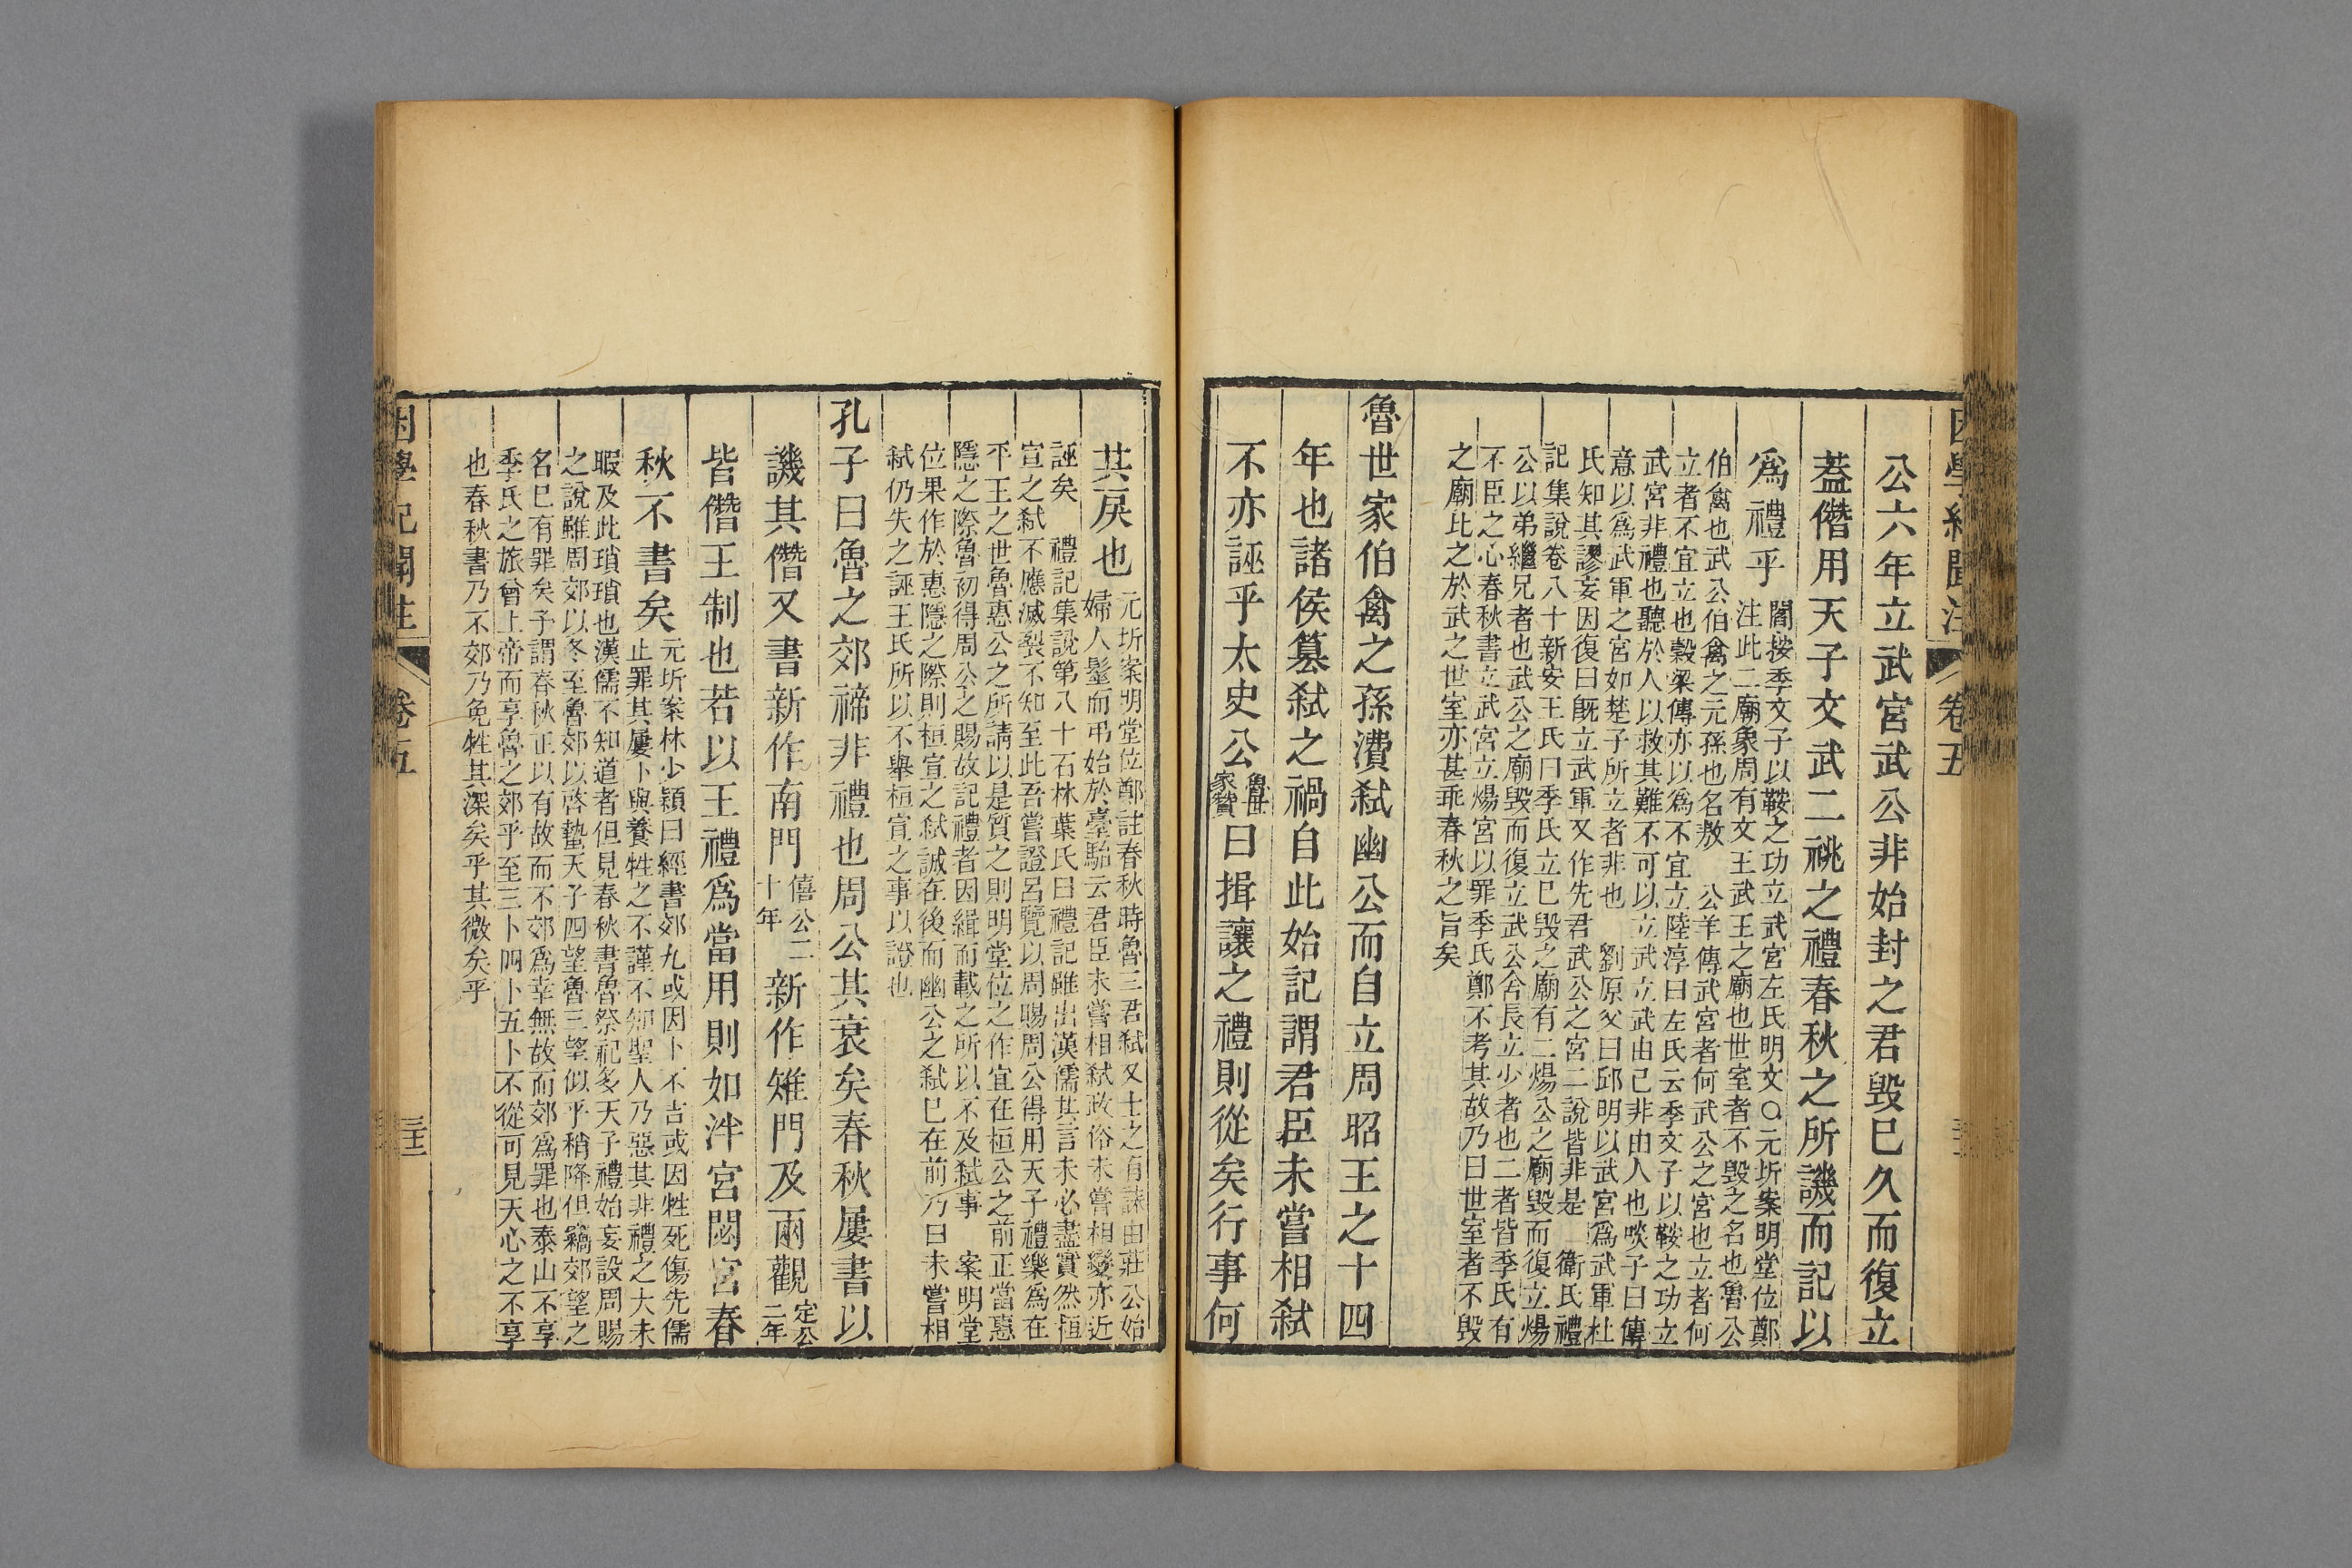 公六年立武宮武公非始封之君毀巳久而復立
蓋僭用天子文武二祧之禮春秋之所譏而記以
爲禮乎
閻按季文子以鞍之功立武宮左氏明文○元圻案明堂位鄭
注此二廟象周有文王武王之廟也世室者不毀之名也魯公
伯禽也武公伯禽之元孫也名敖 公羊傳武宮者何武公之宮也立者何
立者不宜立也穀梁傳亦以爲不宜立陸淳曰左氏云季文子以鞍之功立
武宮非禮也聽於人以救其難不可以立武立武由己非由人也啖子曰傳
意以爲武軍之宮如楚子所立者非也 劉原父曰邱明以武宮爲武軍杜
氏知其謬妄因復曰旣立武軍又作先君武公之宮二說皆非是 衛氏禮
記集說卷八十新安王氏曰季氏立巳毀之廟有二煬公之廟毀而復立煬
公以弟繼兄者也武公之廟毀而復立武公舍長立少者也二者皆季氏有
不臣之心春秋書立武宮立煬宮以罪季氏鄭不考其故乃曰世室者不毀
之廟比之於武之世室亦甚乖春秋之旨矣
魯世家伯禽之孫灃弑幽公而自立周昭王之十四
年也諸侯簒弑之禍自此始記謂君臣未嘗相弑
不亦誣乎太史公
魯世
家贊
曰揖讓之禮則從矣行事何
困學紀聞注 卷五
其戾也
元圻案明堂位鄭註春秋時魯三君弑又士之有誄由莊公始
婦人髽而弔始於臺駘云君臣未嘗相弑政俗未嘗相變亦近
誣矣 禮記集說第八十石林葉氏曰禮記雖出漢儒其言未必盡實然桓
宣之弑不應滅裂不知至此吾嘗證呂覽以周賜周公得用天子禮樂爲在
平王之世魯惠公之所請以是質之則明堂位之作宜在桓公之前正當惠
隱之際魯初得周公之賜故記禮者因緝而載之所以不及弑事 案明堂
位果作於惠隱之際則桓宣之弑誠在後而幽公之弑巳在前乃曰未嘗相
弑仍失之誣王氏所以不舉桓宣之事以證也
孔子曰魯之郊禘非禮也周公其衰矣春秋屢書以
譏其僭又書新作南門
僖公二
十年
新作雉門及兩觀
定公
二年
皆僭王制也若以王禮爲當用則如泮宮閟宮春
秋不書矣
元圻案林少穎曰經書郊九或因卜不吉或因牲死傷先儒
止罪其屢卜與養牲之不謹不知聖人乃惡其非禮之大未
暇及此瑣瑣也漢儒不知道者但見春秋書魯祭祀多天子禮始妄設周賜
之說雖周郊以冬至魯郊以啓蟄天子四望魯三望似乎稍降但竊郊望之
名巳有罪矣予謂春秋正以有故而不郊爲幸無故而郊爲罪也泰山不享
季氏之旅曾上帝而享魯之郊乎至三卜四卜五卜不從可見天心之不享
也春秋書乃不郊乃免牲其深矣乎其微矣乎
困學紀聞注 卷五